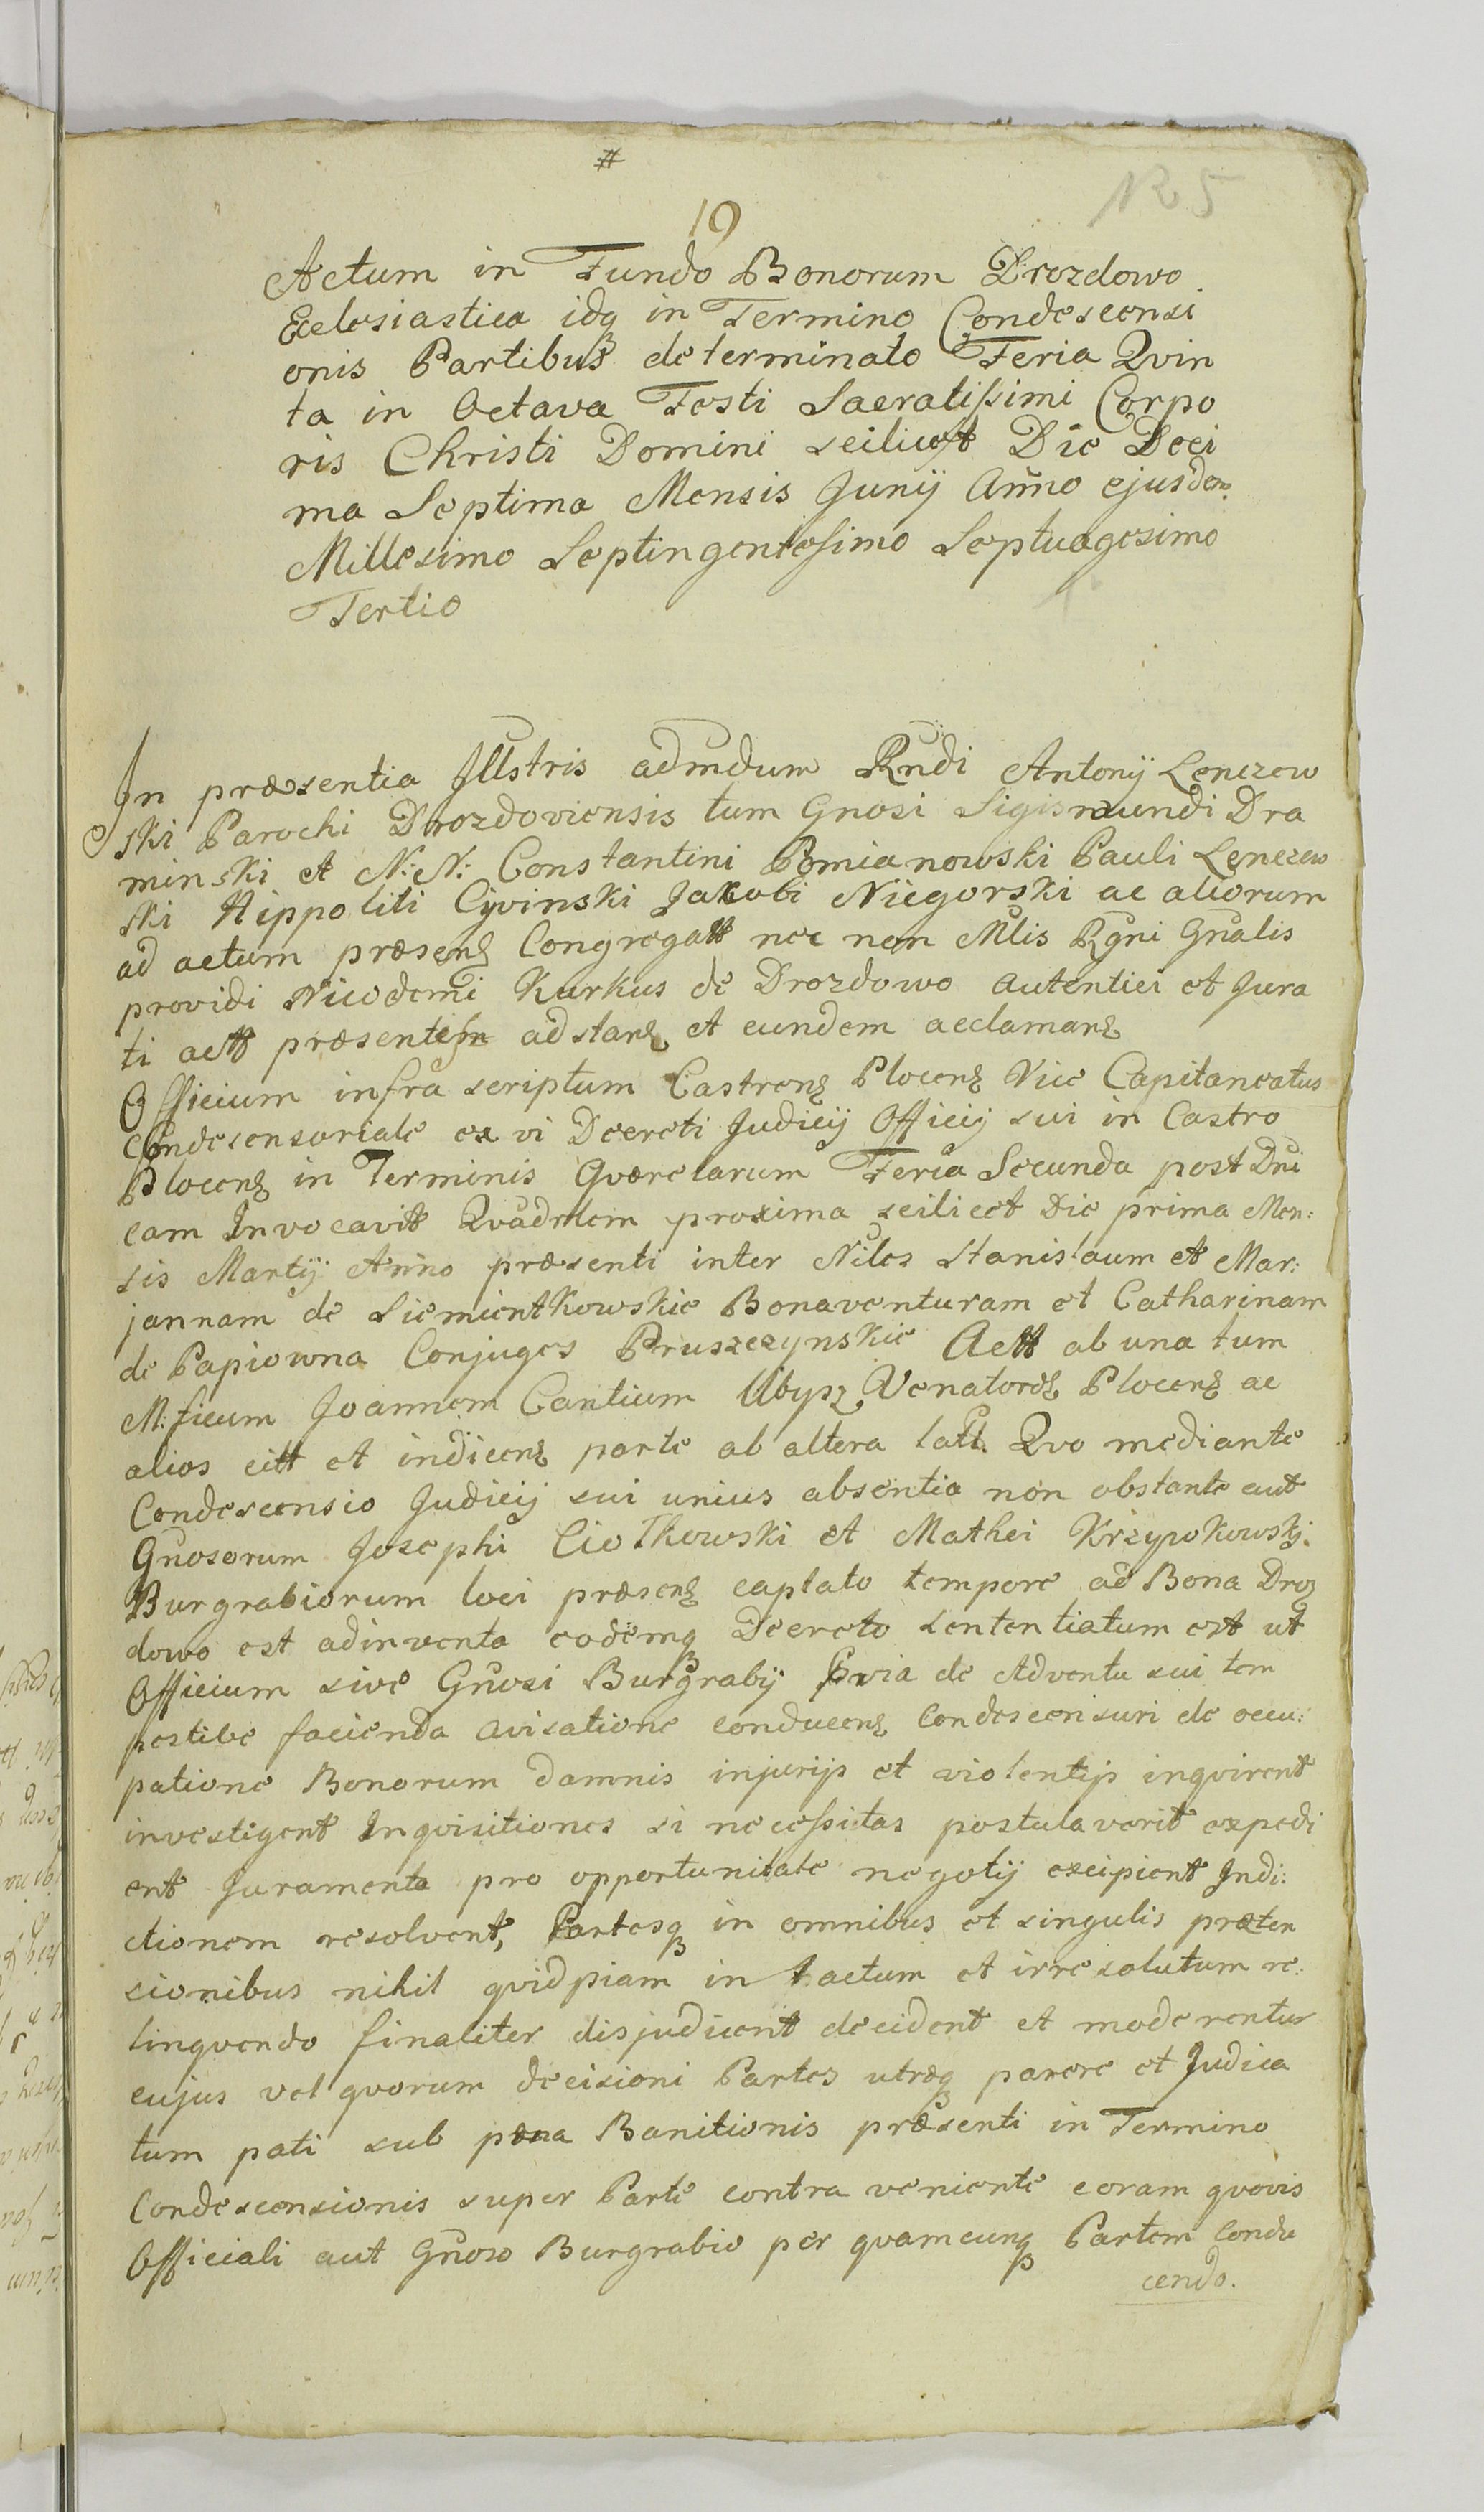 #
19
N 5
Actum in Fundo Bonorum Drozdowo
Ecclesiastica idq in Termino Condescensi
onis Partibus determinato Feria Qvin
ta in Octava Festi Sacratissimi Corpo
ris Christi Domini scilicet Die Deci
ma Septima Mensis Junij Anno ejusdem
Millesimo Septingentesimo Septuagesimo
Tertio
In præsentia Illstris admdum Rndi Antonij Lenczew
ski Parochi Drozdoviensis tum Gnosi Sigismundi Dra
minski et N: N: Constantini Pomianowski Pauli Lenczew
ski Hippoliti Cywinski Jakobi Niegorski ac aliorum
ad actum præsens Congregatt nec non Mlis Rgni Gnalis
providi Nicodemi Kurkus de Drozdowo autentici et Jura
ti actt præsentem adstans et eundem acclamans
Officium infra scriptum Castrens Plocens Vice Capitaneatus
Condescensoriale ex vi Decreti Judicij Officij sui in Castro
Plocens in Terminis Qværelarum Feria Secunda post Dni
cam Invocavit Qvadrlem proxima scilicet Die prima Men:
sis Martij Anno præsenti inter Nilos Stanislaum et Mar:
jannam de Siemientkowskie Bonaventuram et Catharinam
de Papiowna Conjuges Pruszczynskie Actt ab una tum
M:ficum Joannem Cantium Ubysz Venatores Plocens ac
alios citt et indicens parte ab altera latt. Qvo mediante
Condescensio Judicij sui unius absentia non obstante aut
Gnosorum Josephi Ciotkowski et Mathei Krzywkowskj.
Burgrabiorum loci præsens captato tempore ad Bona Droz
dowo est adinventa eodemq Decreto sententiatum est ut
Officium sive Gnosi Burgrabij Prvia de Adventu sui tem
pestive facienda avisatione conducens Condescensuri de occu:
patione Bonorum damnis injurijs et violentijs inqvirent
investigent Inqvisitiones si necessitas postulaverit expedi
ent Juramenta pro opportunitate negotij excipient Indi:
ctionem resolvent, Partesq in omnibus et singulis præten
sionibus nihil qvidpiam in tactum et irresolutum re:
linqvendo finaliter disjudicent decident et moderentur
cujus vel qvorum decisioni Partes utræq parere et Judica
tum pati sub pæna Banitionis præsenti in Termino
Condescensionis super Parte contra veniente coram qvovis
Officiali aut Gnoso Burgrabio per qvamcunq Partem Condu
cendo.